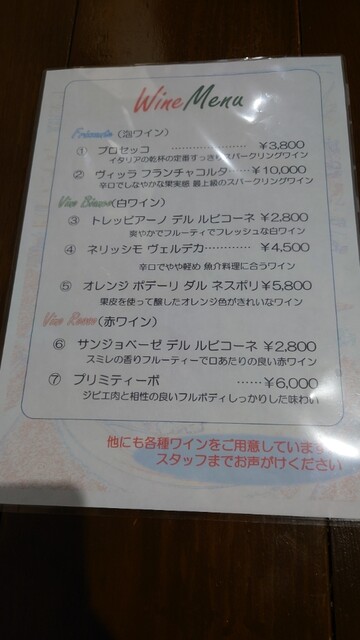 Wine Menu
Frizzante (泡ワイン)
① プロセッコ ………………… ¥3,800
イタリアの乾杯の定番すっきりスパークリングワイン
② ヴィッラ フランチャコルタ…… ¥10,000
辛口でしなやかな果実感 最上級のスパークリングワイン
Vino Bianco(白ワイン)
③ トレッビアーノ デル ルビコーネ ¥2,800
爽やかでフルーティでフレッシュな白ワイン
④ ネリッシモ ヴェルデカ………… ¥4,500
辛口でやや軽め 魚介料理に合うワイン
⑤ オレンジ ポデーリ ダル ネスポリ ¥5,800
果皮を使って醸したオレンジ色がきれいなワイン
Vino Rosso(赤ワイン)
⑥ サンジョベーゼ デル ルビコーネ ¥2,800
スミレの香りフルーティーで口あたりの良い赤ワイン
⑦ プリミティーボ ……¥6,000
ジビエ肉と相性の良いフルボディしっかりした味わい
他にも各種ワインをご用意しています
スタッフまでお声がけください